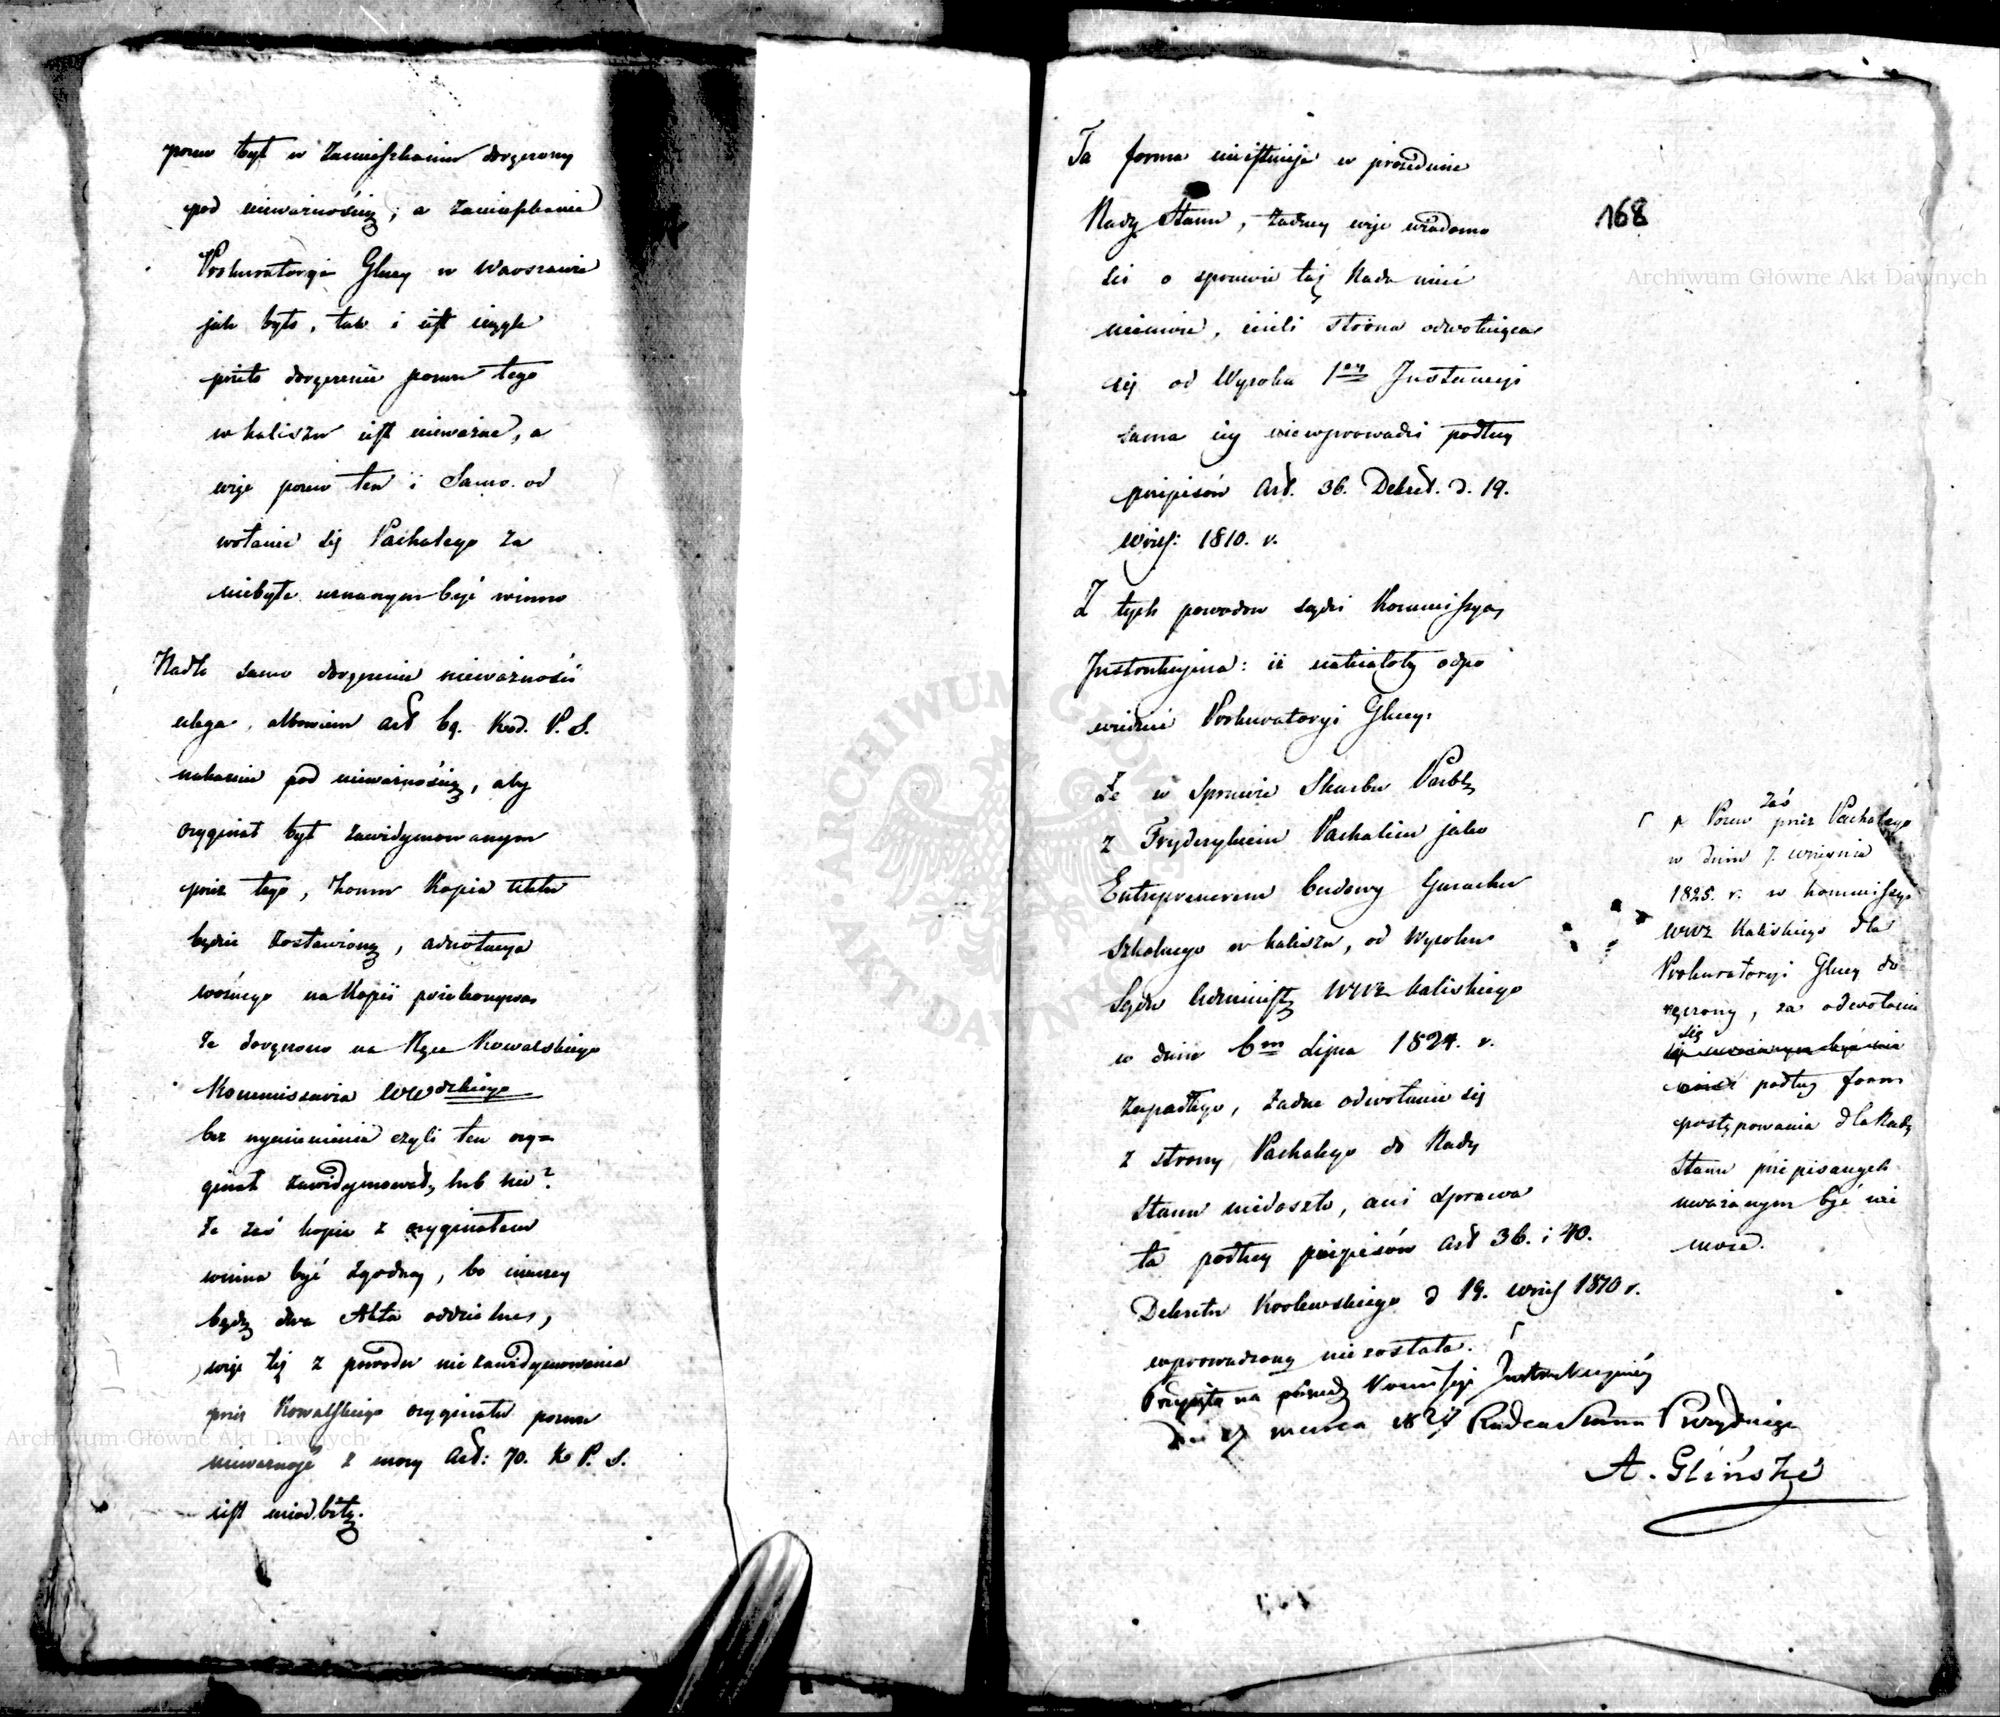 pozew był w Zamieszkaniu doręczony
pod nieważnością; a zamieszkanie
Prokuratoryi Glney w Warszawie
jak było, tak i iest ciągle
przeto doręczenie pozwu tego
w Kaliszu iest nieważne, a
więc pozew ten i Samo od
wołanie się Paschalego za
niebyłe uznanym być winno
Nadto samo doręczenie nieważności
ulega, albowiem art 69. Kod. P. S.
nakazuie pod nieważnością, aby
oryginał był zawidymowanym
przez tego, komu Kopia aktu
będzie zostawioną, adnotacya
woźnego na Kopii przekonywa
że doręczono na Ręce Kowalskiego
Kommissarza WWdzkiego
bez wymienienia czyli ten ory=
ginał zawidymował, lub nie?
Że zaś kopia z oryginałem
winna być zgodną, bo inaczey
będą dwa Akta oddzielne,
więc też z powodu niezawidymowania
przez Kowalskiego oryginału pozwu
nieważność z mocy Art: 70. K. P. S.
iest niedbitą.
168
Ta forma nieistnieje w procedurze
Rady Stanu, żadney więc wiadomo
ści o sprawie tej Rada mieć
niemoże, ieżeli strona odwołuiąca
się od Wyroku 1ey Instancyi
sama iey niewprowadzi podług
przepisów Art. 36. Dekret. d. 19.
wrześ: 1810. r.
Z tych powodow sądzi Kommissya
Instrukcyjna: iż należałoby odpo
wiedzieć Prokuratoryi Glney:
Że w Sprawie Skarbu Publ
z Fryderykiem Paschalim jako
Entreprenerem budowy Gmachu
Szkolnego w Kaliszu, od Wyroku
Sądu Administ WWdz Kaliskiego
w dniu 6m Lipca 1824. r.
zapadłego, żadne odwołanie się
z strony Paschalego do Rady
Stanu niedoszło, ani sprawa
ta podług przepisów art 36. i 40.
Dekretu Krolewskiego d 19. wrześ 1810 r.
wprowadzoną niezostała.
Przyięta na posiedz Komissyi Instrukcyjnéy
marca Radca Stanu Prezyduiący
A. Gliński
zaś
Pozew przez Paschalego
w dniu 7. września
1825. r. w Kommissyi
WWdz Kaliskiego dla
Prokuratoryi Glney do
ręczony, za odwołanie
się
podług form
postępowania dla Rady
Stanu przepisanych
uważanym być nie
może.
Archiwum Główne Akt Dawnych
Archiwum Główne Akt Dawnych
ARCHIWUM GŁÓWNE AKT DAWNYCH